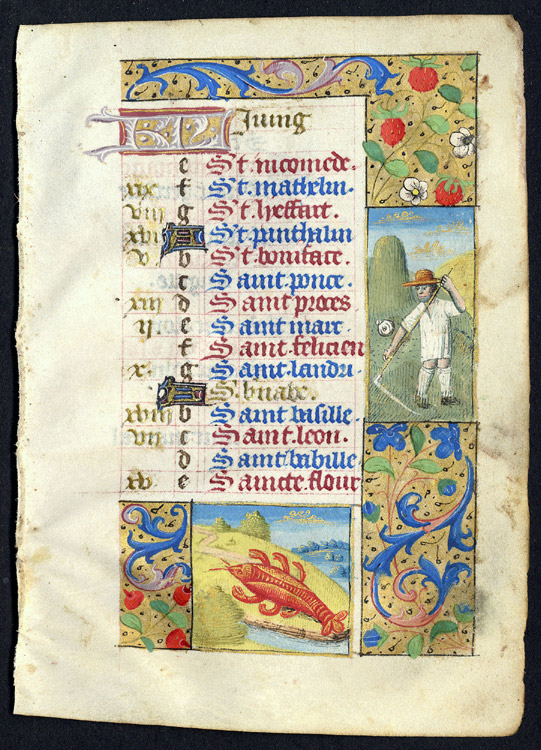 KL Juing
e St. nicomede.
xix f St. mathelin.
viii g St. lieffart.
xvi A St. panthalin
v. b St. boniface.
c Saint ponce.
xiii d Saint proces
ii e Saint marc.
f Saint felicien
x. g Saint landri.
A S. bnabe.
xviii b Saint basille.
vii c Saint leon.
d Saint babille
xv e Saincte flour